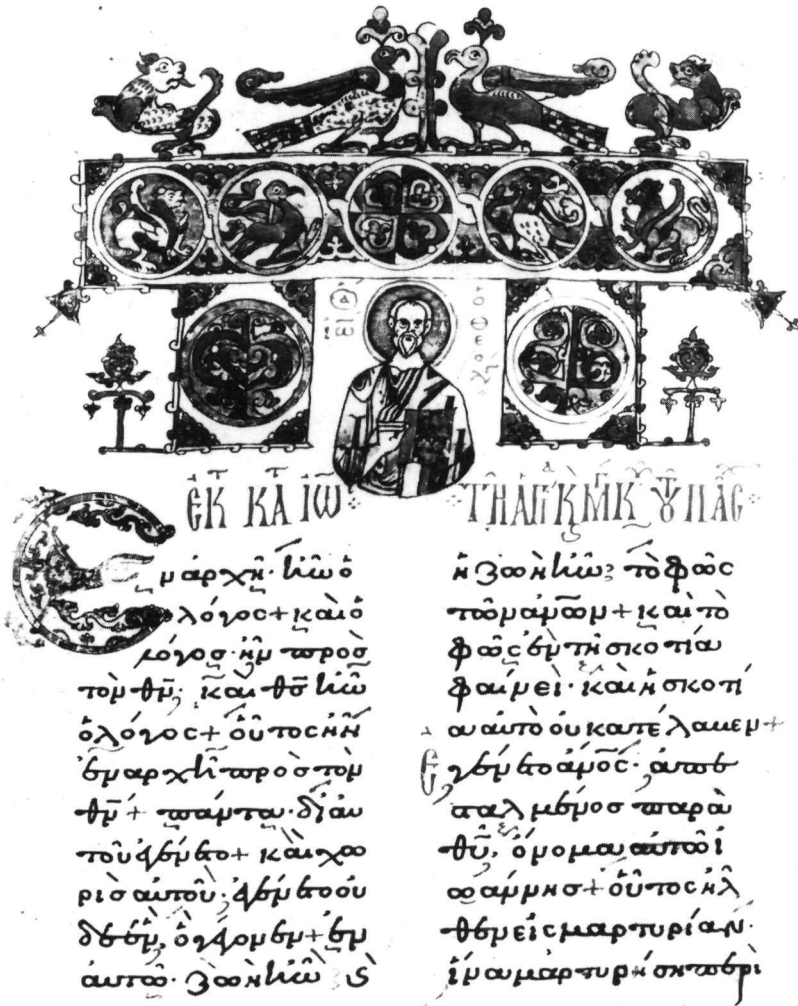 ἐκ κα ἰω
τῇ ἁγί κ μ κ τοῦ πασ
Ἐν ἀρχῆ ἦν ὁ
λόγος + καὶ ὁ
λόγος ἦν πρὸσ
τὸν θν̅· καὶ θσ̅ ἦν
ὁ λόγος + οὗτος ἦν
ἐν αρχῆ πρὸσ τὸν
θν̅ + πάντα δι᾽ αυ
τοῦ ἐγένετο + καὶ χω
ρὶσ αὐτοῦ ἐγένετο οὐ
δὲ ἕν, ὃ γέγονεν + ἐν
αὐτῶ ζωὴ ἦν κ(αὶ)
ἡ ζωὴ ἦν τὸ φῶς
τῶν ἀνων + καὶ τὸ
φῶς ἐν τῆ σκοτία
φαίνει· καὶ ἡ σκοτί
α αυτὸ οὐ κατέλαβεν +
Ἐγένετο ἀνος· ἀπεσ
ταλμένοσ παρὰ
θῦ, ὄνομα αὐτῶ ἰ
ωάννησ + οὗτος ἦλ
θεν εἰς μαρτυρίαν·
ἵνα μαρτυρήση περὶ